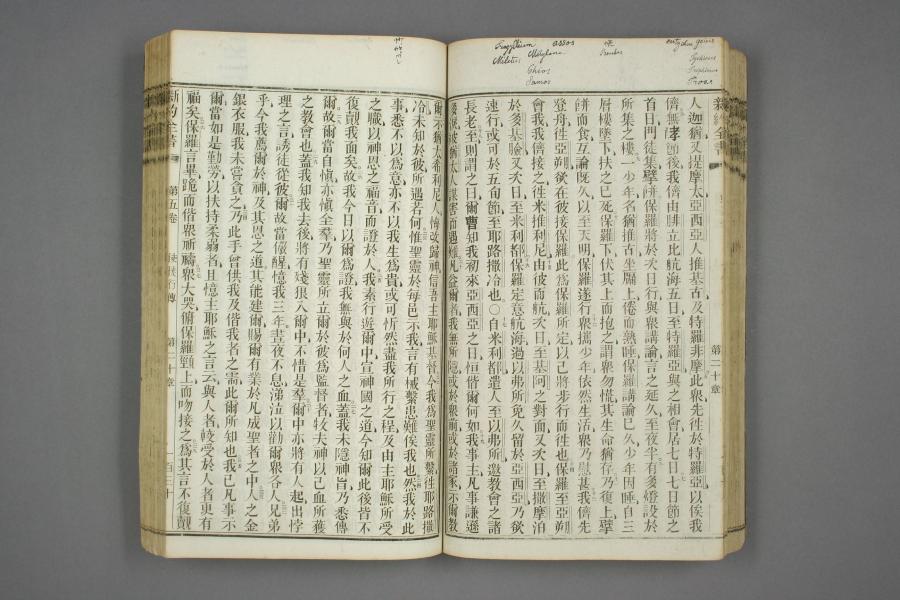 Trogyllium assos
Miletus Mitylene
Chios
Samos
eutychus gaius
Troas
新約全書
第二十章
人迦猶又提摩太亞西亞人推基古及特羅非摩此衆先徃於特羅亞以俟我
儕無孝節後我儕由腓立比航海五日至特羅亞與之相會居七日七日節之
首日門徒集擘餅保羅將於次日行與衆講論言之延久至夜半有多燈設於
所集之樓一少年名猶推古坐牖上倦而熟睡保羅講論已久少年因睡自三
層樓墜下扶之已死保羅下伏其上而抱之謂衆勿慌其生命猶存乃復上擘
餅而食互論旣久以至天明保羅遂行衆攜少年依然生活衆乃慰甚我儕先
登舟徃亞朔欲在彼接保羅此爲保羅所定以己將步行而徃也保羅至亞朔
會我我儕接之徃米推利尼由彼而航次日至基阿之對面又次日至撒摩泊
於多基臉又次日至米利都保羅定意航海過以弗所免久留於亞西亞乃欲
速行或可於五旬節至耶路撒冷也○自米利都遣人至以弗所邀教會之諸
長老至則謂之曰爾曹知我初來亞西亞之日恒偕爾何如我事主凡事謙遜
爾示猶太希利尼人悔改歸神信吾主耶穌基督今我爲聖靈所繫徃耶路撒
冷未知於彼所遇若何惟聖靈於每邑示我言有械繫患難俟我也然我於此
事悉不以爲意亦不以我生爲貴或可忻然盡我所行之程及由主耶穌所受
之職以神恩之福音而證於人我素行遊爾中宣神國之道今知爾此後皆不
復覿我面矣故我今日以爾爲證我無與於何人之血蓋我未隱神旨乃悉傳
爾故爾當自愼亦愼全羣乃聖靈所立爾於彼爲監督者牧夫神以己血所獲
之教會也蓋我知我去後將有殘狼入爾中不惜是羣爾中亦將有人起出悖
理之言誘徒從彼爾故當儆醒憶我三年晝夜不息涕泣以勸爾衆各人兄弟
乎今我薦爾於神及其恩之道其能建爾賜爾有業於凡成聖者之中人之金
銀衣服我未嘗貪之乃此手曾供我及偕我者之需此爾所知也我已凡事示
爾當如是勤勞以扶持柔弱者且憶主耶穌之言云與人者較受於人者更有
福矣保羅言畢跪而偕衆祈禱衆大哭俯保羅頸上而吻接之爲其言不復覿
第五卷
第二十章
一百三十